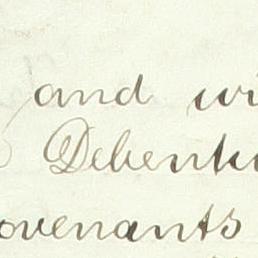 and wi
Debentu
ovenants